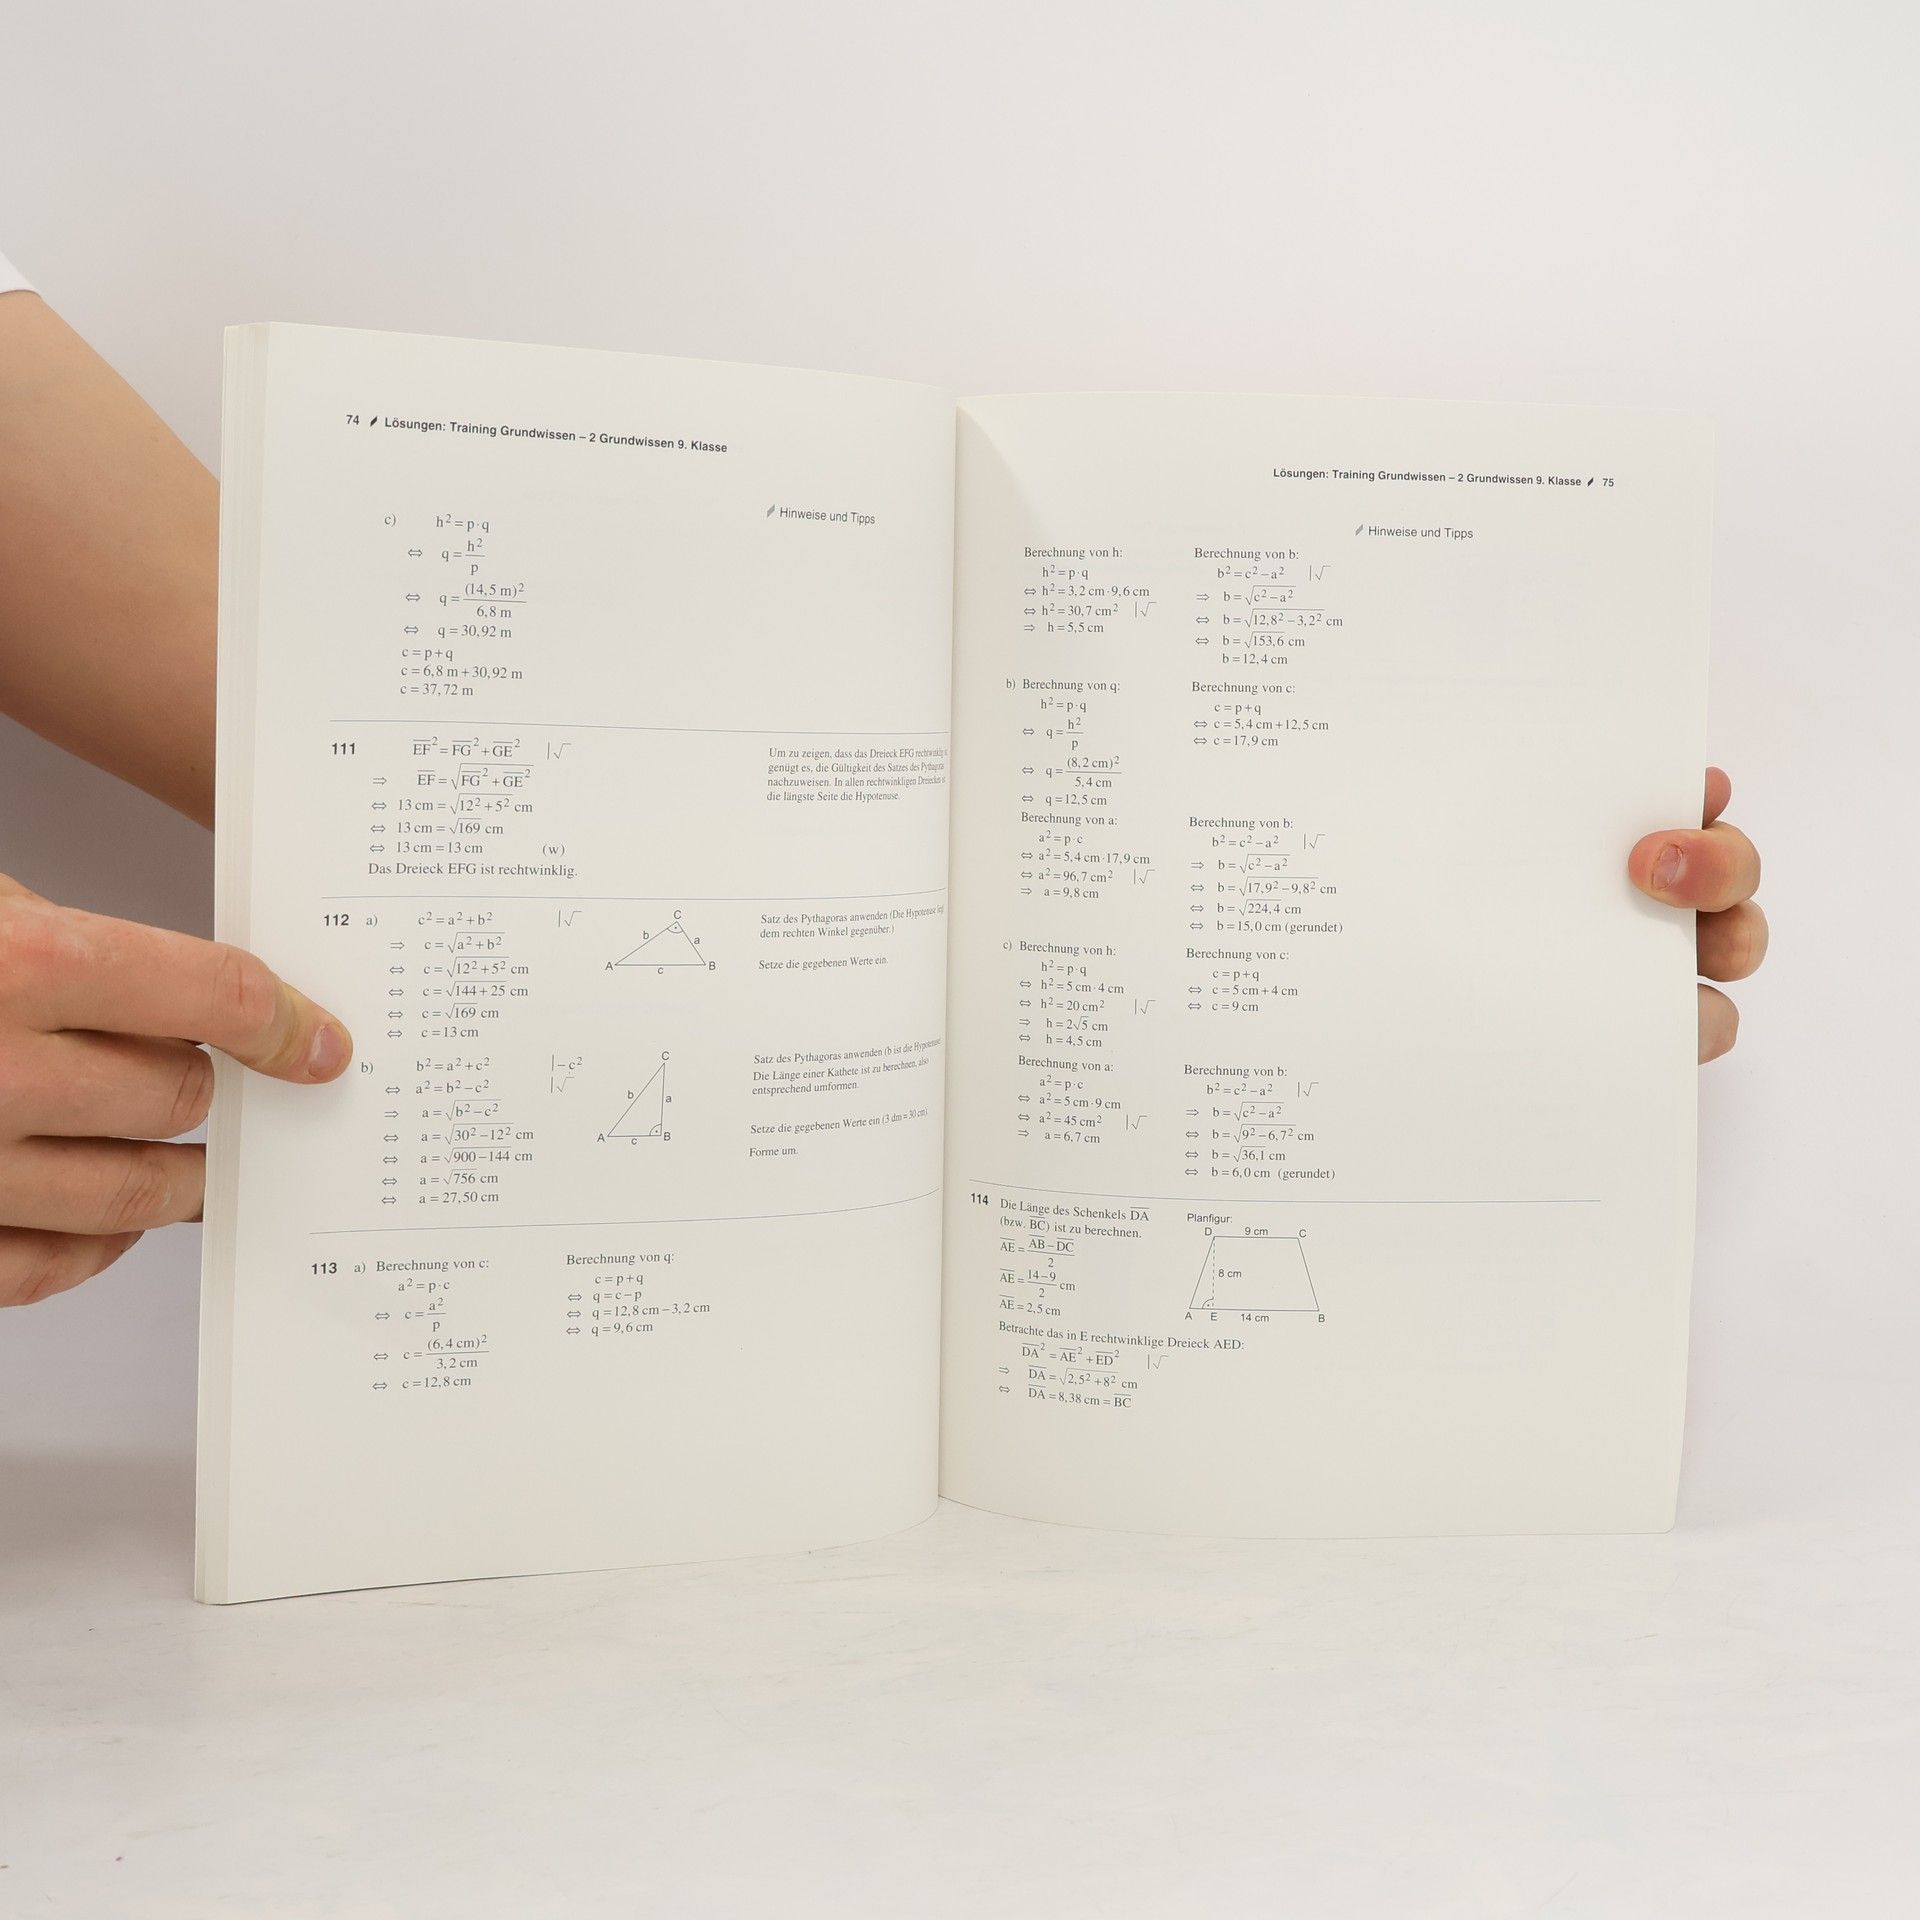 74 Lösungen: Training Grundwissen – 2 Grundwissen 9. Klasse
Hinweise und Tipps
c) h² = p · q
⇔ q = h²/p
⇔ q = (14,5 m)²/6,8 m
⇔ q = 30,92 m
c = p + q
c = 6,8 m + 30,92 m
c = 37,72 m
111 E̅F̅² = F̅G̅² + G̅E̅² |√
⇒ E̅F̅ = √(F̅G̅² + G̅E̅²)
⇔ 13 cm = √(12² + 5²) cm
⇔ 13 cm = √169 cm
⇔ 13 cm = 13 cm (w)
Das Dreieck EFG ist rechtwinklig.
Um zu zeigen, dass das Dreieck EFG rechtwinklig
genügt es, die Gültigkeit des Satzes des Pythagoras
nachzuweisen. In allen rechtwinkligen Dreiecken
die längste Seite die Hypotenuse.
112 a) c² = a² + b² |√
⇒ c = √(a² + b²)
⇔ c = √(12² + 5²) cm
⇔ c = √(144 + 25) cm
⇔ c = √169 cm
⇔ c = 13 cm
C
b
a
A
c
B
Satz des Pythagoras anwenden (Die Hypotenuse liegt
dem rechten Winkel gegenüber.)
Setze die gegebenen Werte ein.
b) b² = a² + c² |– c²
⇔ a² = b² – c² |√
⇒ a = √(b² – c²)
⇔ a = √(30² – 12²) cm
⇔ a = √(900 – 144) cm
⇔ a = √756 cm
⇔ a = 27,50 cm
C
b
a
A
c
B
Satz des Pythagoras anwenden (b ist die Hypotenuse
Die Länge einer Kathete ist zu berechnen, also
entsprechend umformen.
Setze die gegebenen Werte ein (3 dm = 30 cm).
Forme um.
113 a) Berechnung von c:
a² = p · c
⇔ c = a²/p
⇔ c = (6,4 cm)²/3,2 cm
⇔ c = 12,8 cm
Berechnung von q:
c = p + q
⇔ q = c – p
⇔ q = 12,8 cm – 3,2 cm
⇔ q = 9,6 cm
Lösungen: Training Grundwissen – 2 Grundwissen 9. Klasse 75
Hinweise und Tipps
Berechnung von h:
h² = p · q
⇔ h² = 3,2 cm · 9,6 cm
⇔ h² = 30,7 cm² |√
⇒ h = 5,5 cm
Berechnung von b:
b² = c² – a² |√
⇒ b = √(c² – a²)
⇔ b = √(12,8² – 3,2²) cm
⇔ b = √153,6 cm
b = 12,4 cm
b) Berechnung von q:
h² = p · q
⇔ q = h²/p
⇔ q = (8,2 cm)²/5,4 cm
⇔ q = 12,5 cm
Berechnung von c:
c = p + q
⇔ c = 5,4 cm + 12,5 cm
⇔ c = 17,9 cm
Berechnung von a:
a² = p · c
⇔ a² = 5,4 cm · 17,9 cm
⇔ a² = 96,7 cm² |√
⇒ a = 9,8 cm
Berechnung von b:
b² = c² – a² |√
⇒ b = √(c² – a²)
⇔ b = √(17,9² – 9,8²) cm
⇔ b = √224,4 cm
⇔ b = 15,0 cm (gerundet)
c) Berechnung von h:
h² = p · q
⇔ h² = 5 cm · 4 cm
⇔ h² = 20 cm² |√
⇒ h = 2√5 cm
⇔ h = 4,5 cm
Berechnung von c:
c = p + q
⇔ c = 5 cm + 4 cm
⇔ c = 9 cm
Berechnung von a:
a² = p · c
⇔ a² = 5 cm · 9 cm
⇔ a² = 45 cm² |√
⇒ a = 6,7 cm
Berechnung von b:
b² = c² – a² |√
⇒ b = √(c² – a²)
⇔ b = √(9² – 6,7²) cm
⇔ b = √36,1 cm
⇔ b = 6,0 cm (gerundet)
114 Die Länge des Schenkels D̅A̅
(bzw. B̅C̅) ist zu berechnen.
A̅E̅ = (A̅B̅ – D̅C̅)/2
A̅E̅ = (14 – 9)/2 cm
A̅E̅ = 2,5 cm
Planfigur:
D 9 cm C
8 cm
A E 14 cm B
Betrachte das in E rechtwinklige Dreieck AED:
D̅A̅² = A̅E̅² + E̅D̅² |√
⇒ D̅A̅ = √(2,5² + 8²) cm
⇔ D̅A̅ = 8,38 cm = B̅C̅